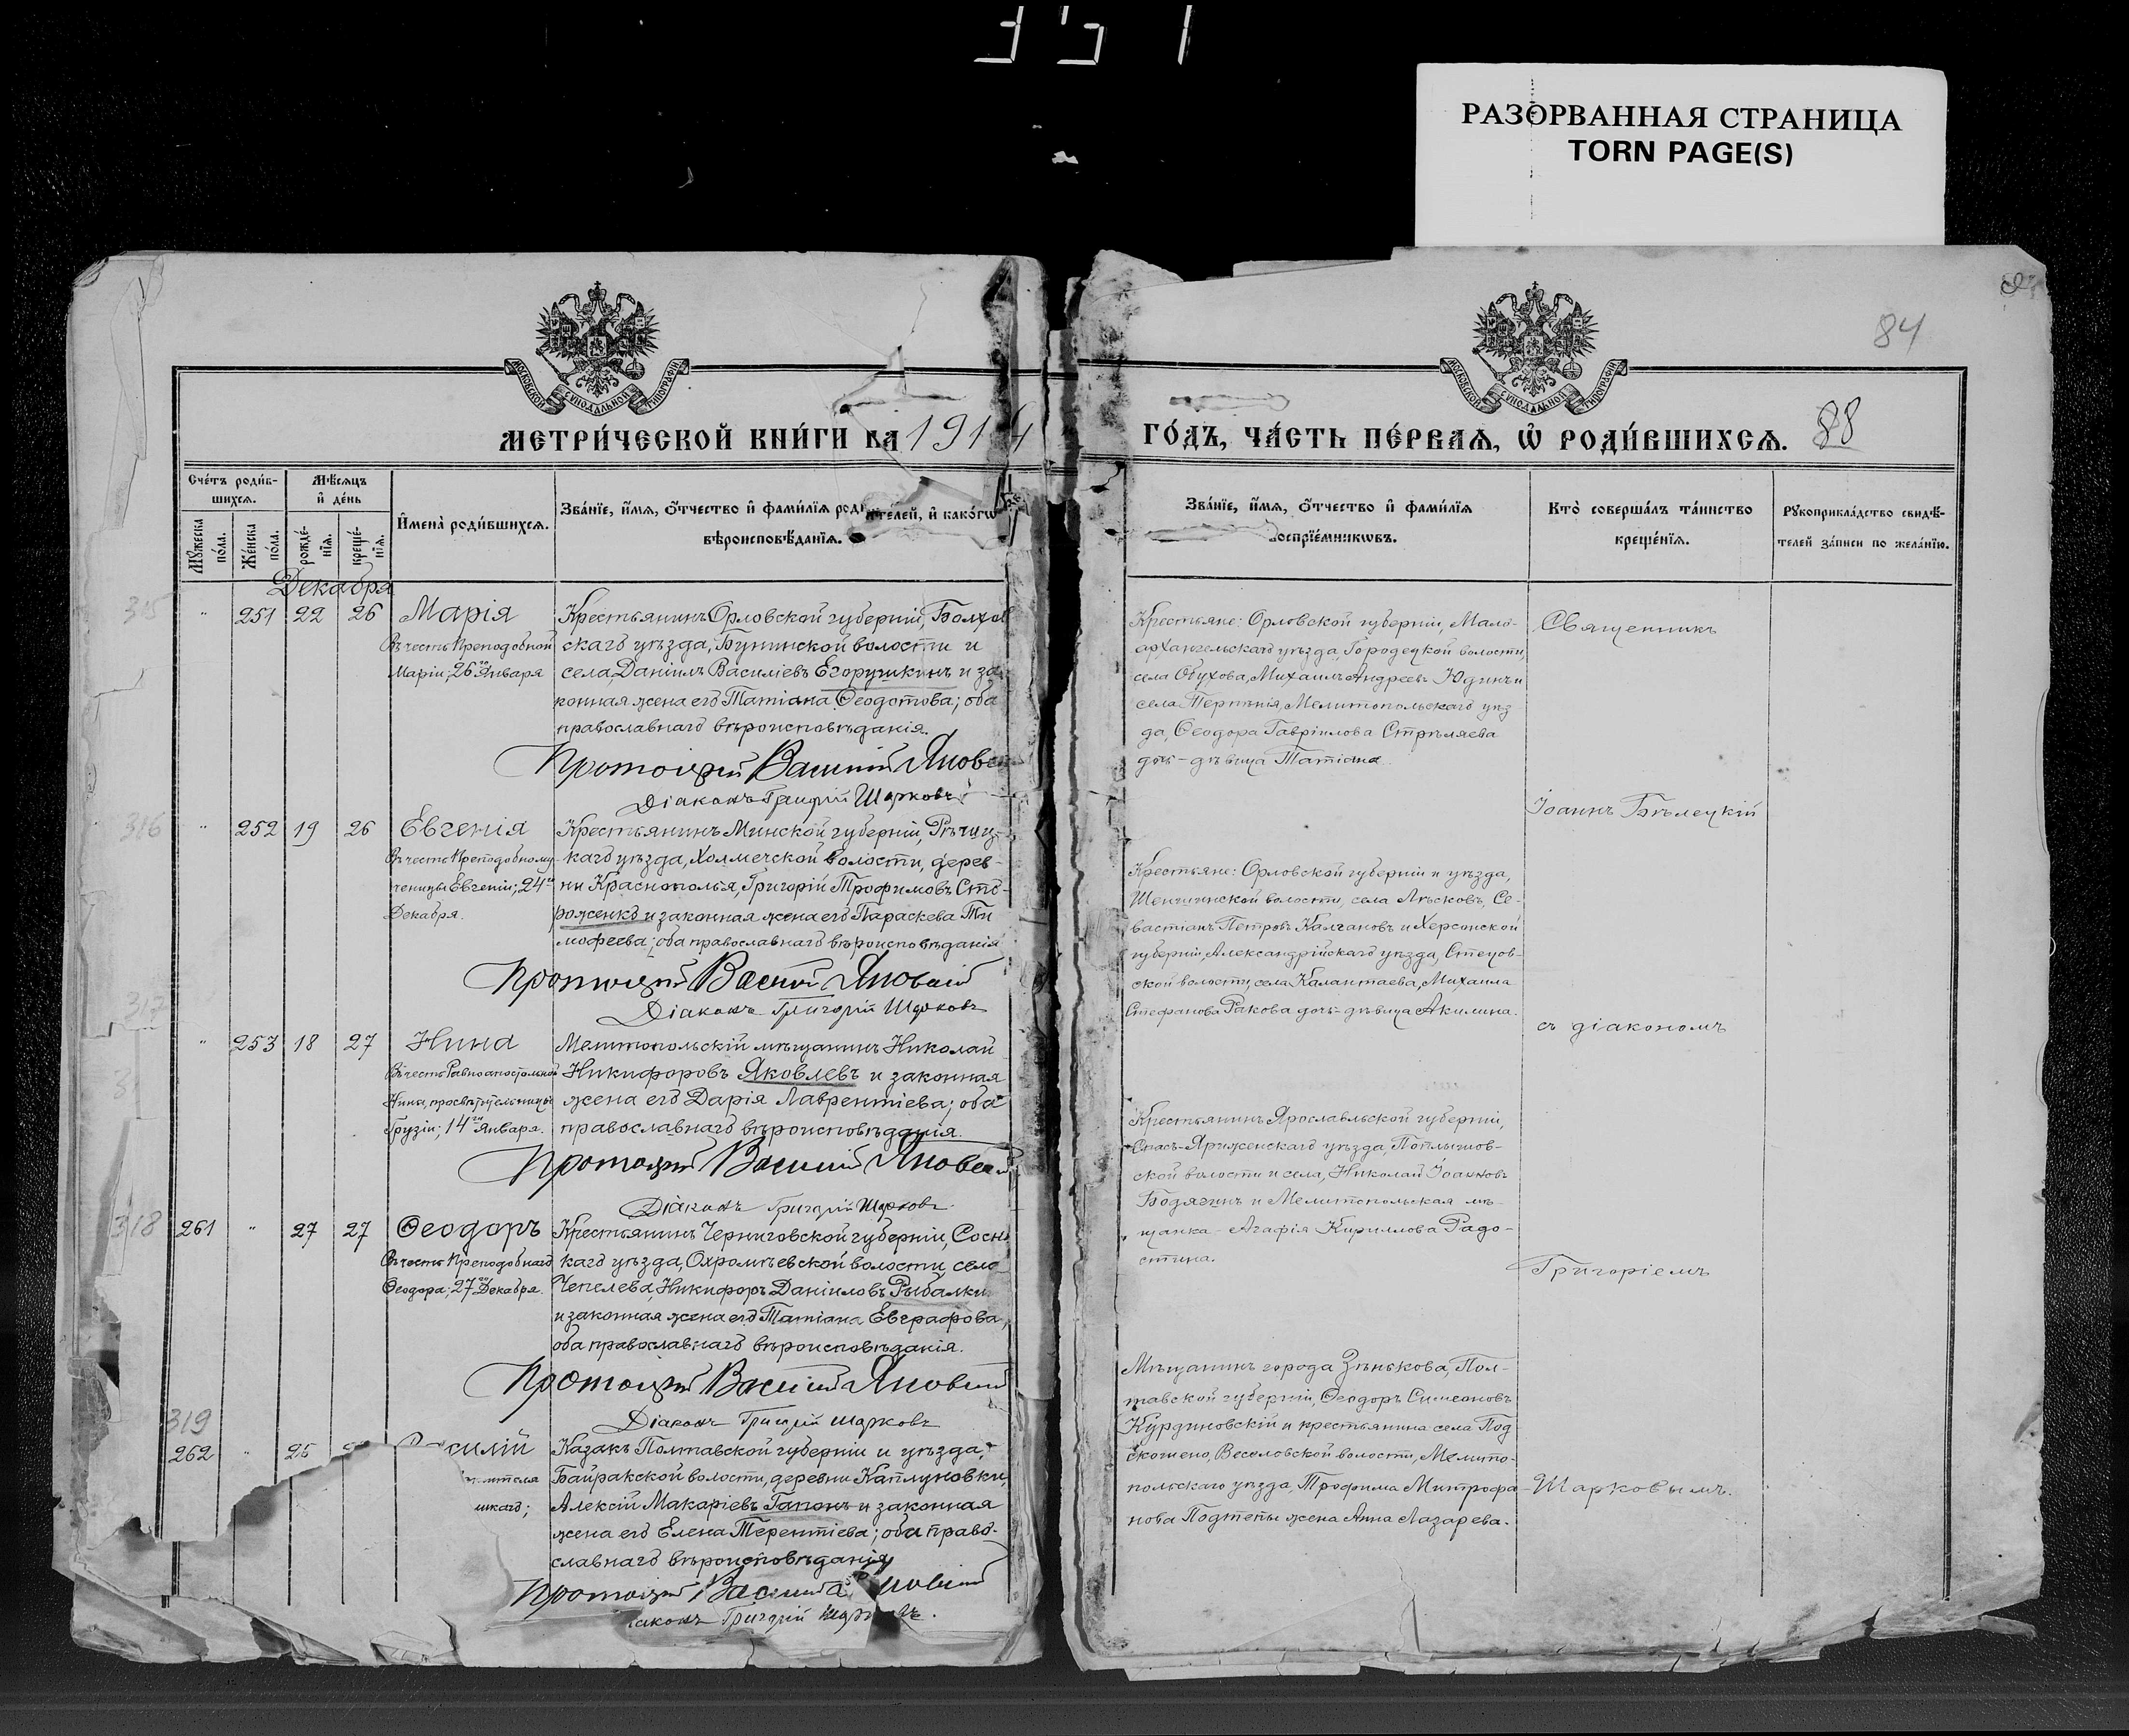 351
РАЗОРВАННАЯ СТРАНИЦА
TORN PAGE(S)
84
МОСКОВСКОЙ СѴНОДАЛЬНОЙ ТИПОГРАФІИ
МОСКОВСКОЙ СѴНОДАЛЬНОЙ ТИПОГРАФІИ
МЕТРИ́ЧЕСКОЙ КНИ́ГИ НА 1914
ГО́ДЪ, ЧА́СТЬ ПЕ́РВАЯ, Ѡ РОДИ́ВШИХСЯ. 88
Сче́тъ роди́в-
шихся.
Мѣ́сяцъ
и де́нь
Мꙋ́жеска
по́ла.
Же́нска
по́ла.
рожде́-
нїя.
креще́-
нїя.
Имена̀ роди́вшихся.
Зва́нїе, и́мя, о́тчество и фами́лїя роди́телей, и како́гѡ
вѣроисповѣ́данїя.
Зва́нїе, и́мя, о́тчество и фами́лїя
воспрїе́мникѡвъ.
Кто̀ соверша́лъ та́инство
креще́нїя.
Рꙋкоприкла́дство свидѣ́-
телей за́писи по жела́нїю.
Декабря
315 " 251 22 26 Марія
Въ честь Преподобной
Маріи; 26го Января
Крестьянинъ Орловской губерніи, Болхов
скаго уѣзда, Бунинской волости и
села, Даніилъ Василіевъ Егорушкинъ и за-
конная жена его Татіана Ѳеодотова; оба
православнаго вѣроисповѣданія.
Протоіерей Василій Яновск
Діаконъ Григорій Шарковъ
Крестьяне: Орловской губерніи, Мало-
архангельскаго уѣзда, Городецкой волости,
села Обухова, Михаилъ Андреевъ Юдинъ и
села Терпѣнія, Мелитопольскаго уѣз
да, Ѳеодора Гавріилова Стрѣляева
дочь - дѣвица Татіана.
Священникъ
316 " 252 19 26 Евгенія
Въ честь Преподобному-
ченицы Евгеніи; 24го
Декабря.
Крестьянинъ Минской губерніи, Рѣчиц-
каго уѣзда, Холмечской волости, дерев-
ни Краснополья, Григорій Трофимовъ Сто-
роженко и законная жена его Параскева Ти
мофеева; оба православнаго вѣроисповѣданія
Протоіерей Василій Яновскій
Діаконъ Григорій Шарковъ
Іоаннъ Бѣлецкій
Крестьяне: Орловской губерніи и уѣзда,
волости, села Лѣсковъ, Се-
вастіанъ Петровъ Калгановъ и Херсонской
губерніи, Александрійскаго уѣзда, Стецов-
ской волости, села Калантаева, Михаила
Стефанова Ракова дочь - дѣвица Акилина.
317 " 253 18 27 Нина
Въ честь Равноапостольной
Нины, просвѣтительницы
Грузіи; 14го Января.
Мелитопольскій мѣщанинъ Николай
Никифоровъ Яковлевъ и законная
жена его Дарія Лаврентіева; оба
православнаго вѣроисповѣданія.
Протоіерей Василій Яновскій
Діаконъ Григорій Шарковъ
съ діакономъ
Крестьянинъ Ярославльской губерніи,
уѣзда,
ской волости и села, Николай Іоанновъ
Бодягинъ и Мелитопольская мѣ-
щанка - Агафія Кириллова Радо-
стина.
318 261 " 27 27 Ѳеодоръ
Въ честь Преподобнаго
Ѳеодора; 27го Декабря.
Крестьянинъ Черниговской губерніи, Сосни
каго уѣзда, Охрамѣевской волости, села
Чепелева, Никифоръ Даніиловъ Рыбалки
и законная жена его Татіана Евграфова,
оба православнаго вѣроисповѣданія.
Протоіерей Василій Яновскій
Діаконъ Григорій Шарковъ
Григоріемъ
Мѣщанинъ города Зѣнькова, Пол-
тавской губерніи, Ѳеодоръ Симеоновъ
Курдиновскій и крестьянина села Под
Веселовской волости, Мелито-
польскаго уѣзда, Трофима Митрофа-
нова Подтепы жена Анна Лазарева.
319
262 " 25 силій
ителя
шкаго;
Казакъ Полтавской губерніи и уѣзда,
Байракской волости, деревни Каплуновки,
Алексій Макаріевъ Гапонъ и законная
жена его Елена Терентіева; оба право-
славнаго вѣроисповѣданія
Протоіерей Василій Яновскій
іаконъ Григорій Шарковъ.
Шарковымъ.